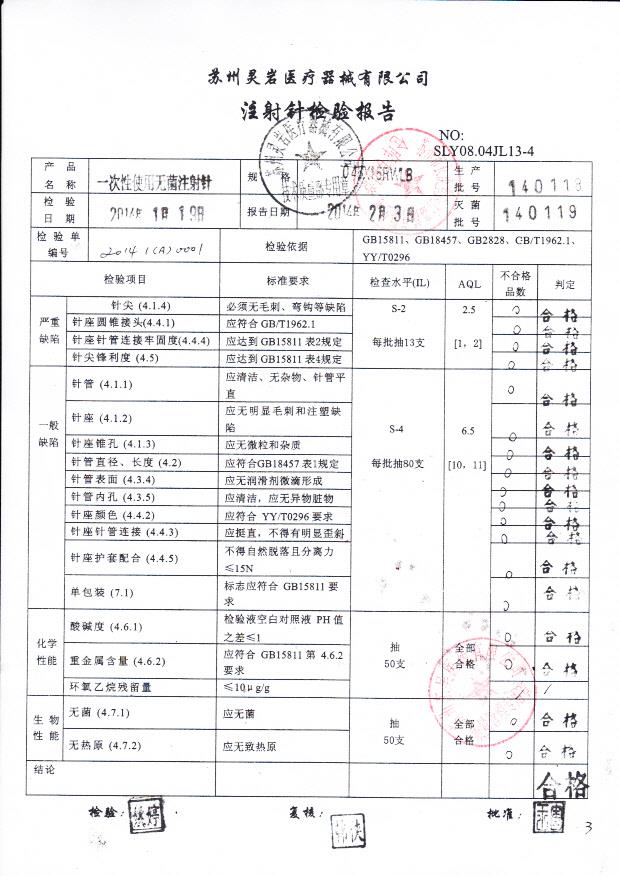 苏州灵岩医疗器械有限公司
注射针检验报告
NO:
SLY08.04JL13-4
产品名称 一次性使用无菌注射针 规格 生产批号 140118
检验日期 2014年 1月 19日 报告日期 2014年 2月 3日 灭菌批号 140119
检验单编号 20141(A)0001 检验依据 GB15811、GB18457、GB2828、CB/T1962.1、
YY/T0296
检验项目 标准要求 检查水平(IL) AQL 不合格品数 判定
严重缺陷 针尖 (4.1.4) 必须无毛刺、弯钩等缺陷 S-2 2.5 0 合格
针座圆锥接头(4.4.1) 应符合 GB/T1962.1 0 合格
针座针管连接牢固度(4.4.4) 应达到 GB15811 表2规定 每批抽13支 [1，2] 0 合格
针尖锋利度 (4.5) 应达到 GB15811 表4规定 0 合格
一般缺陷 针管 (4.1.1) 应清洁、无杂物、针管平直 0 合格
针座 (4.1.2) 应无明显毛刺和注塑缺陷 S-4 6.5 0 合格
针座锥孔 (4.1.3) 应无微粒和杂质 0 合格
针管直径、长度 (4.2) 应符合GB18457 表1规定 每批抽80支 [10，11] 0 合格
针管表面 (4.3.4) 应无润滑剂微滴形成 0 合格
针管内孔 (4.3.5) 应清洁，应无异物脏物 0 合格
针座颜色 (4.4.2) 应符合 YY/T0296 要求 0 合格
针座针管连接 (4.4.3) 应挺直，不得有明显歪斜 0 合格
针座护套配合 (4.4.5) 不得自然脱落且分离力≤15N 0 合格
单包装 (7.1) 标志应符合 GB15811 要求 0 合格
化学性能 酸碱度 (4.6.1) 检验液空白对照液 PH 值之差≤1 抽50支 全部合格 0 合格
重金属含量 (4.6.2) 应符合 GB15811 第 4.6.2 要求 0 合格
环氧乙烷残留量 ≤10μg/g / /
生物性能 无菌 (4.7.1) 应无菌 抽50支 全部合格 0 合格
无热原 (4.7.2) 应无致热原 0 合格
结论 合格
检验: 复核: 批准:
3